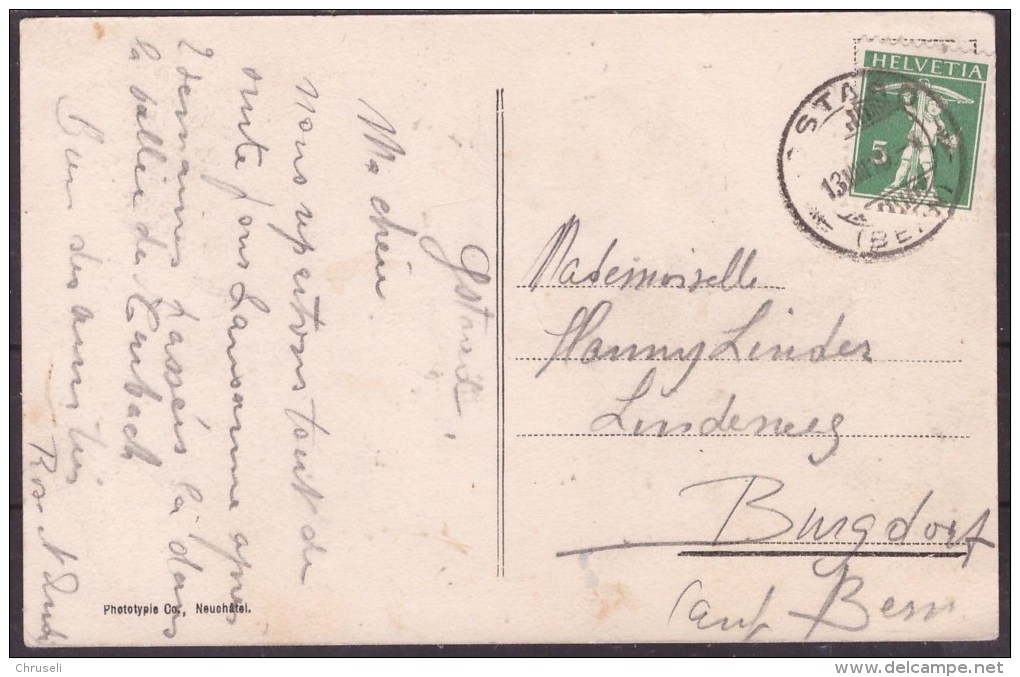 Gstaad,
Ma chère
nous repartons tout de
suite pour Lausanne après
2 semaines passées là dans
la vallée de Turbach
Bien des amitiés
Rose
Phototypie Co., Neuchâtel.
HELVETIA
5
13
(BERN)
Mademoiselle
Hanny Linder
Lindenweg
Burgdorf
Bern
Chruseli
delcampe.net